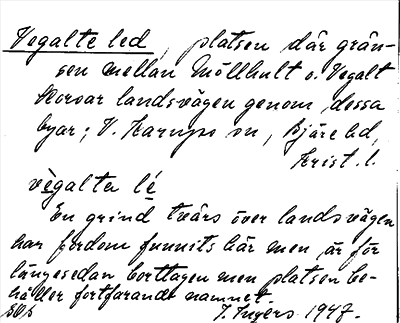 Vegalte led, platsen där grän-
sen mellan Möllhult o. Vegalt
korsar landsvägen genom dessa
byar; V. Karups sn, Bjäre hd,
Krist. l.
vègalta lé
En grind tvärs över landsvägen
har fordom funnits här men är för
längesedan borttagen men platsen be-
håller fortfarande namnet.
J. Ingers 1947.